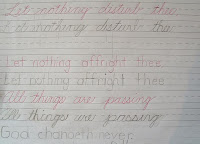 Let nothing disturb thee
Let nothing disturb thee
Let nothing affright thee
Let nothing affright thee
All things are passing
All things are passing
God changeth never